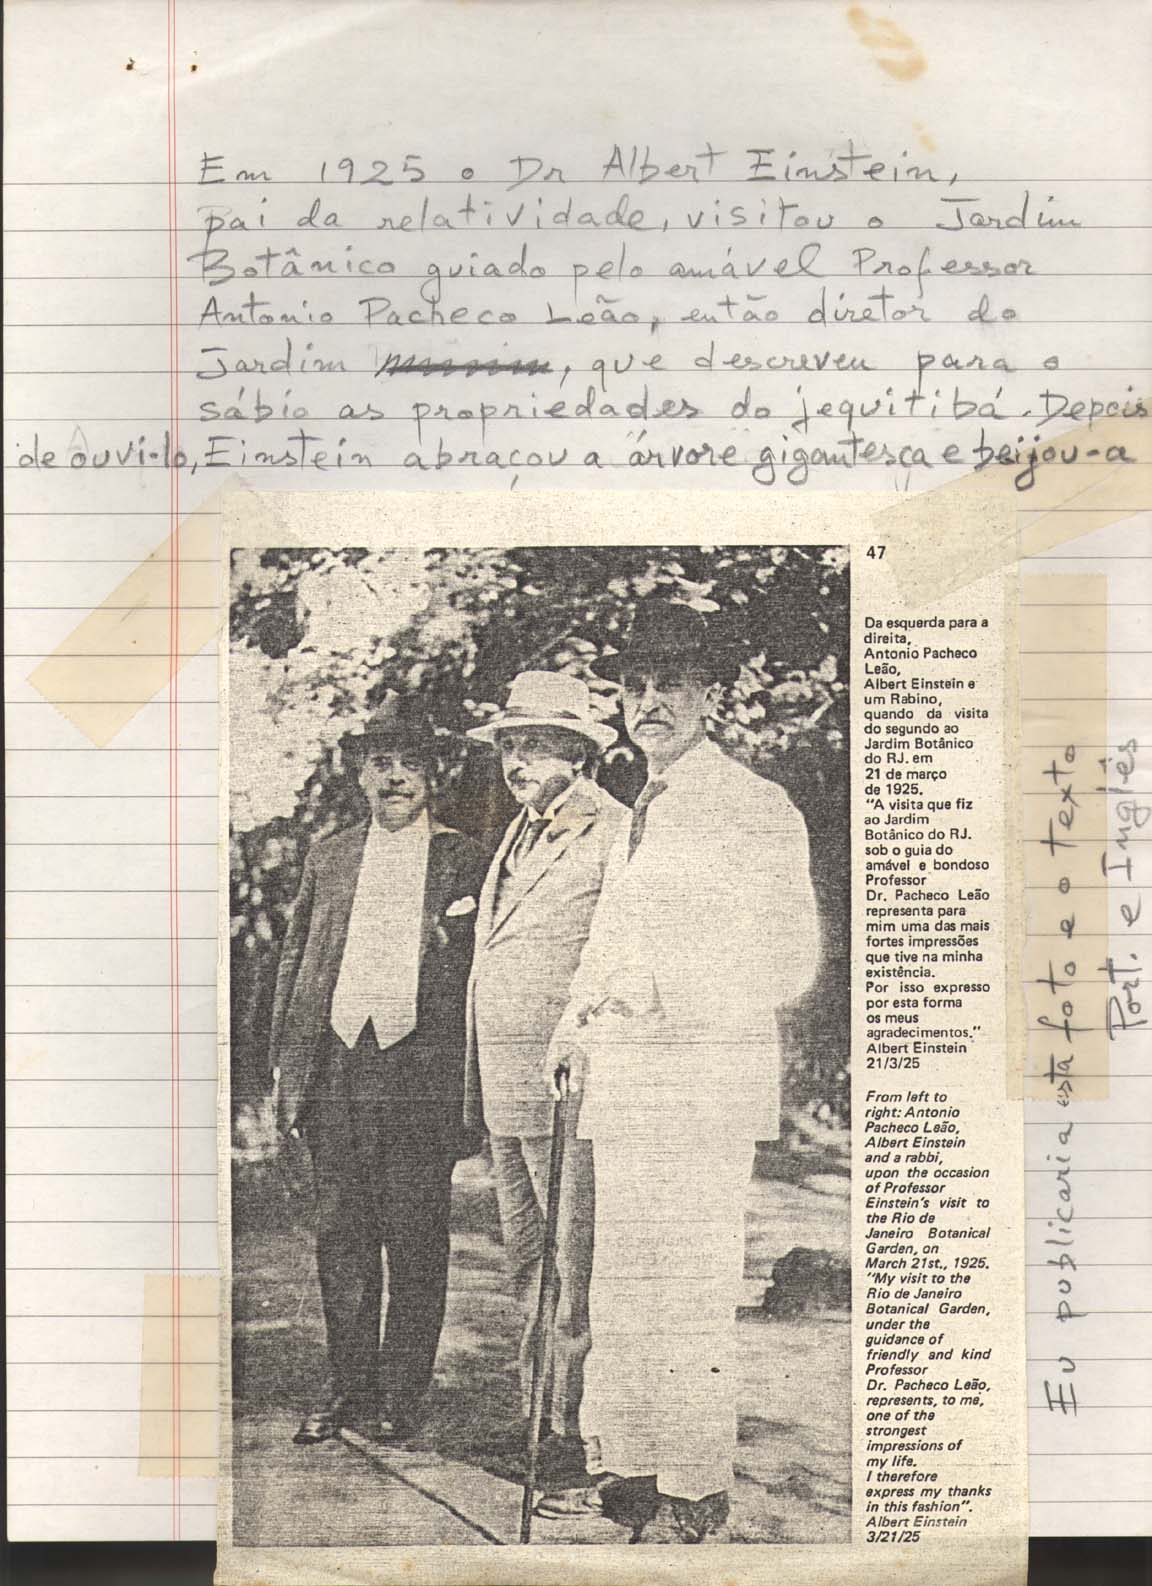 Em 1925 o Dr Albert Einstein,
pai da relatividade, visitou o Jardim
Botânico guiado pelo amável Professor
Antonio Pacheco Leão, então diretor do
Jardim , que descreveu para o
sábio as propriedades do jequitibá. Depois
de ouví-lo, Einstein abraçou a árvore gigantesca e beijou-a
47
Da esquerda para a
direita,
Antonio Pacheco
Leão,
Albert Einstein e
um Rabino,
quando da visita
do segundo ao
Jardim Botânico
do RJ. em
21 de março
de 1925.
"A visita que fiz
ao Jardim
Botânico do RJ.
sob o guia do
amável e bondoso
Professor
Dr. Pacheco Leão
representa para
mim uma das mais
fortes impressões
que tive na minha
existência.
Por isso expresso
por esta forma
os meus
agradecimentos."
Albert Einstein
21/3/25
From left to
right: Antonio
Pacheco Leão,
Albert Einstein
and a rabbi,
upon the occasion
of Professor
Einstein's visit to
the Rio de
Janeiro Botanical
Garden, on
March 21st., 1925.
"My visit to the
Rio de Janeiro
Botanical Garden,
under the
guidance of
friendly and kind
Professor
Dr. Pacheco Leão,
represents, to me,
one of the
strongest
impressions of
my life.
I therefore
express my thanks
in this fashion".
Albert Einstein
3/21/25
Eu publicaria esta foto e o texto
Port. e Inglês